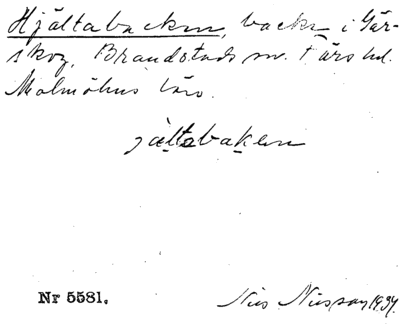 Hjältabacken, backe i Gär-
skog, Brandstads sn. Färs hd.
Malmöhus län.
jältabaken
Nr 5581.
Nils Nilsson 1934.